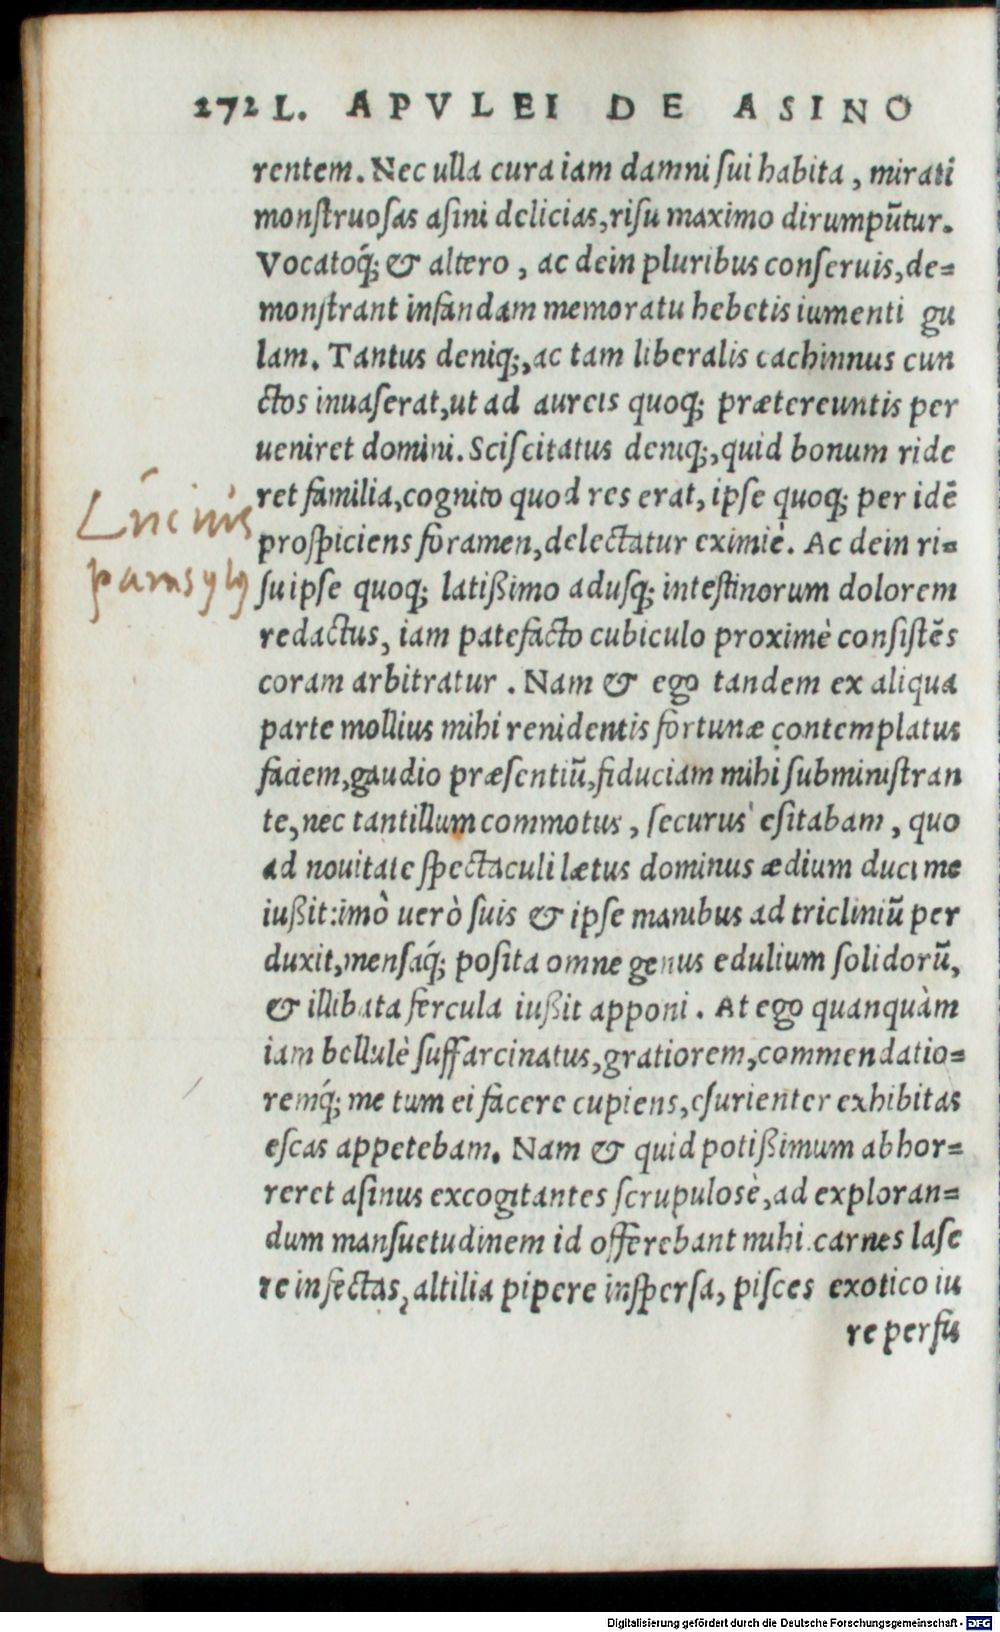 272 L. APVLEI DE ASINO
rentem. Nec ulla cura iam damni ſui habita, mirati
monſtruoſas aſini delicias, riſu maximo dirumpũtur.
Vocatoq́; & altero, ac dein pluribus conſeruis, de=
monſtrant infandam memoratu hebetis iumenti gu
lam. Tantus deniq;, ac tam liberalis cachinnus cun
ctos inuaſerat, ut ad aureis quoq; prætereuntis per
ueniret domini. Sciſcitatus deniq;, quid bonum ride
ret familia, cognito quod res erat, ipſe quoq; per idẽ
proſpiciens foramen, delectatur eximiè. Ac dein ri=
ſu ipſe quoq; latißimo aduſq; inteſtinorum dolorem
redactus, iam patefacto cubiculo proximè conſiſtẽs
coram arbitratur. Nam & ego tandem ex aliqua
parte mollius mihi renidentis fortunæ contemplatus
faciem, gaudio præſentiũ, fiduciam mihi ſubminiſtran
te, nec tantillum commotus, ſecurus eſitabam, quo
ad nouitate ſpectaculi lætus dominus ædium duci me
iußit: imò uerò ſuis & ipſe manibus ad tricliniũ per
duxit, menſaq́; poſita omne genus edulium ſolidorũ,
& illibata fercula iußit apponi. At ego quanquàm
iam bellulè ſuffarcinatus, gratiorem, commendatio=
remq́; me tum ei facere cupiens, eſurienter exhibitas
eſcas appetebam. Nam & quid potißimum abhor=
reret aſinus excogitantes ſcrupulosè, ad exploran=
dum manſuetudinem id offerebant mihi carnes laſe
re infectas, altilia pipere inſperſa, piſces exotico iu
re perfu
Digitalisierung gefördert durch die Deutsche Forschungsgemeinschaft - DFG